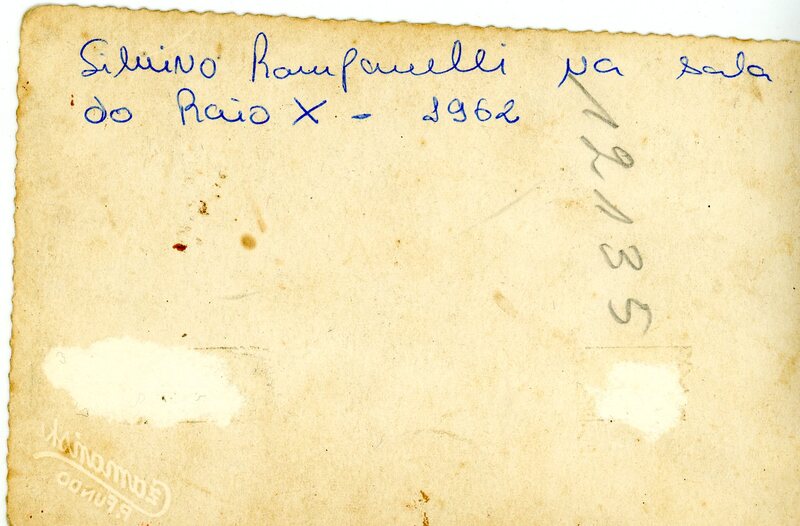 Silvino Rampanelli na sala
do Raio X - 1962
12135
P. FUNDO